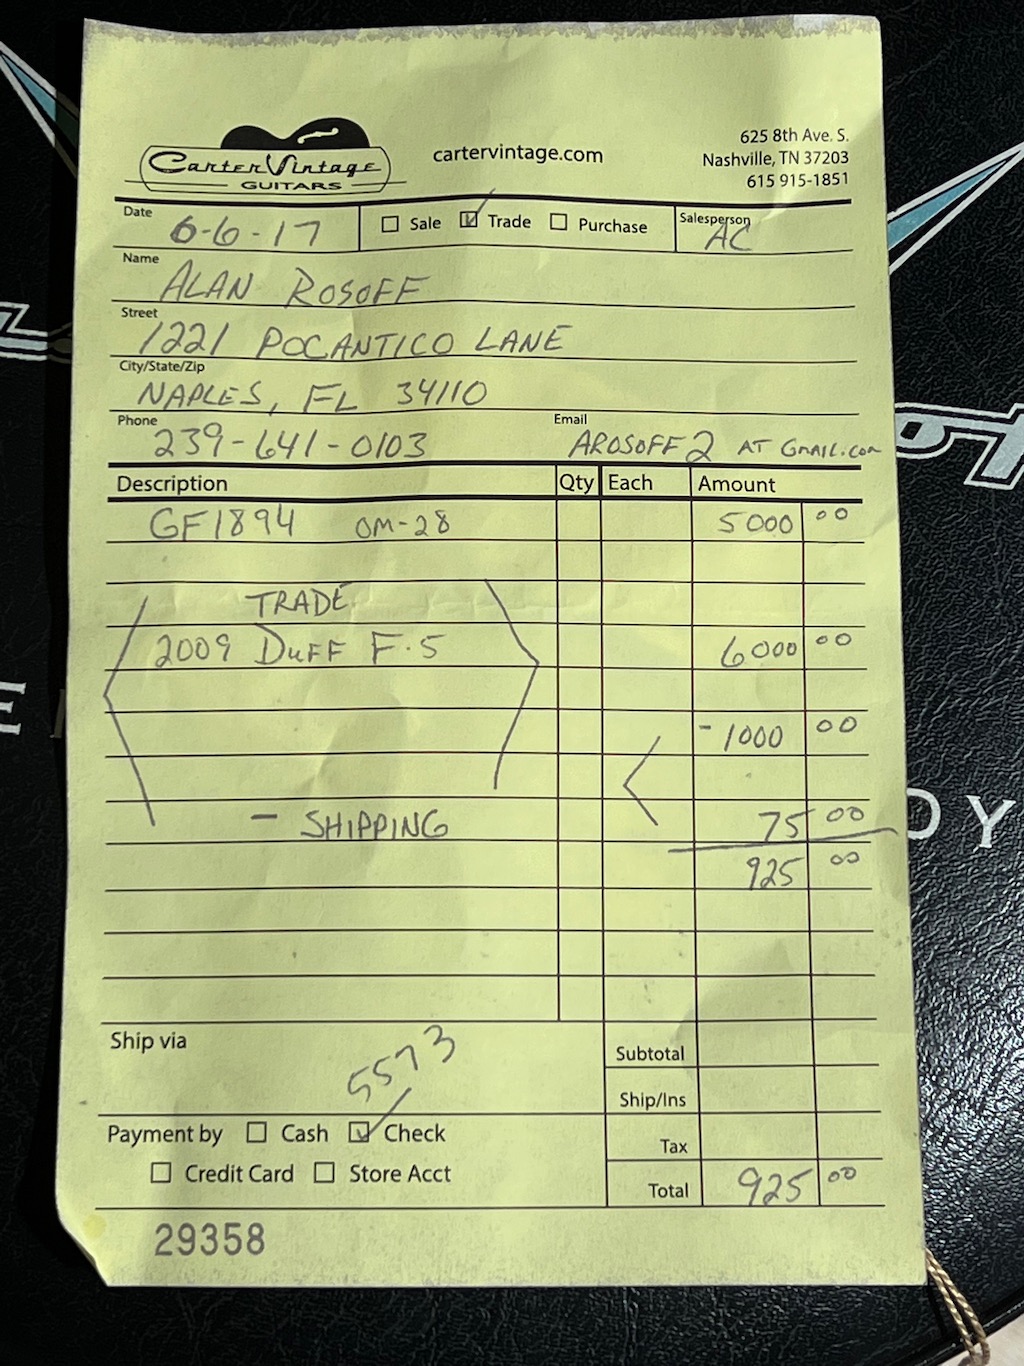 Carter Vintage
GUITARS
cartervintage.com
625 8th Ave. S.
Nashville, TN 37203
615 915-1851
Date 6-6-17 Sale Trade Purchase Salesperson AC
Name ALAN ROSOFF
Street 1221 POCANTICO LANE
City/State/Zip NAPLES, FL 34110
Phone 239-641-0103 Email AROSOFF2 AT GMAIL.COM
Description Qty Each Amount
GF1894 OM-28 5000 00
TRADE
2009 DUFF F-5 6000 00
-1000 00
- SHIPPING 75 00
925 00
Ship via 5573
Subtotal
Ship/Ins
Payment by Cash Check
Tax
Credit Card Store Acct
Total 925 00
29358